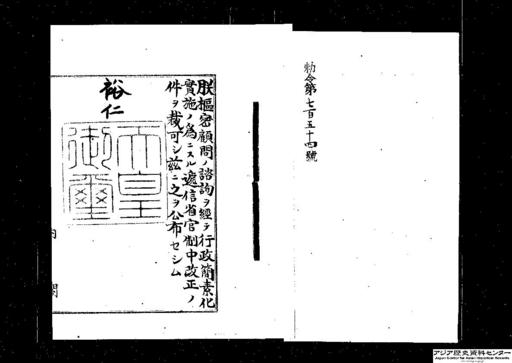 勅令第七百五十四號
朕樞密顧問ノ諮詢ヲ經テ行政簡素化
實施ノ爲ニスル遞信省官制中改正ノ
件ヲ裁可シ茲ニ之ヲ公布セシム
裕仁
天皇
御璽
内
閣
アジア歴史資料センター
Japan Center for Asian Historical Records